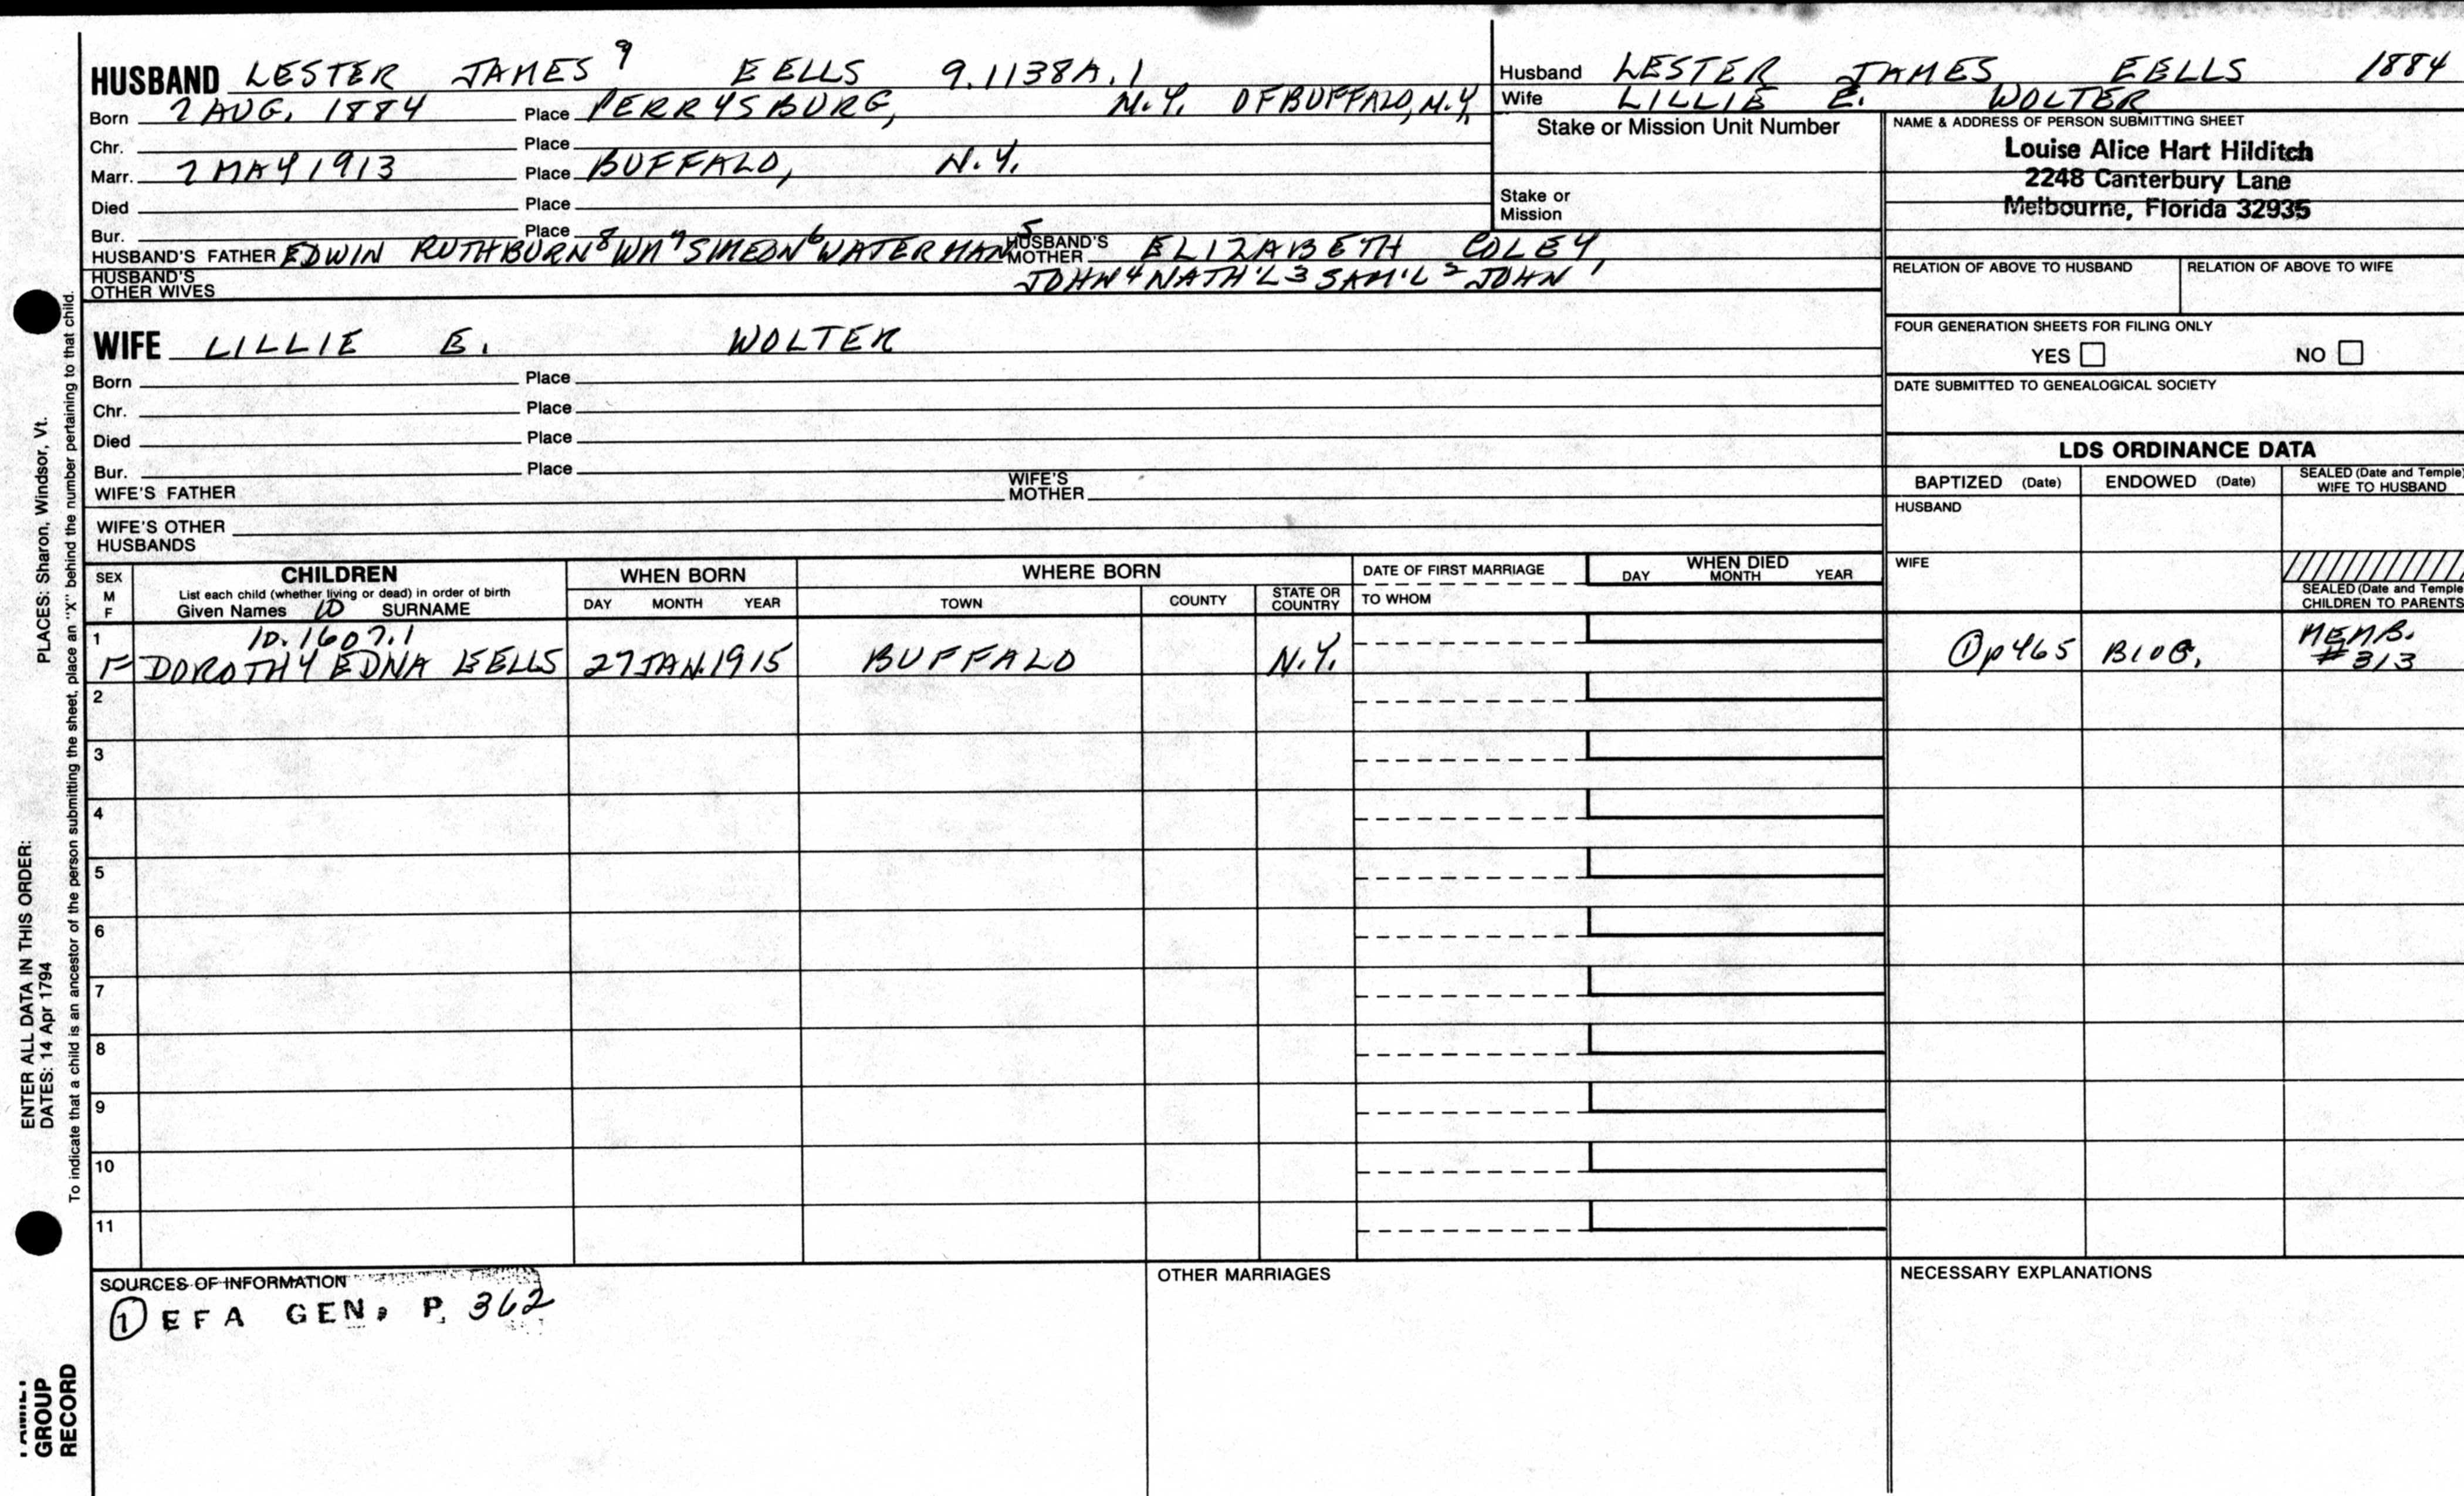 HUSBAND LESTER JAMES 9 EELLS 9.1138A.1
Born 7 AUG. 1884 Place PERRYSBURG, N.Y. OF BUFFALO, N.Y.
Chr. Place
Marr. 7 MAY 1913 Place BUFFALO, N.Y.
Died Place
Bur. Place
HUSBAND'S FATHER EDWIN RUTHBURN 8 WM 7 SIMEON 6 WATERMAN 5 HUSBAND'S MOTHER ELIZABETH COLEY
HUSBAND'S OTHER WIVES JOHN 4 NATH'L 3 SAM'L 2 JOHN 1
Husband LESTER JAMES EELLS 1884
Wife LILLIE E. WOLTER
Stake or Mission Unit Number
Stake or
Mission
NAME & ADDRESS OF PERSON SUBMITTING SHEET
Louise Alice Hart Hilditch
2248 Canterbury Lane
Melbourne, Florida 32935
RELATION OF ABOVE TO HUSBAND RELATION OF ABOVE TO WIFE
FOUR GENERATION SHEETS FOR FILING ONLY
YES NO
DATE SUBMITTED TO GENEALOGICAL SOCIETY
WIFE LILLIE E. WOLTER
Born Place
Chr. Place
Died Place
Bur. Place
WIFE'S FATHER WIFE'S MOTHER
WIFE'S OTHER
HUSBANDS
LDS ORDINANCE DATA
BAPTIZED (Date) ENDOWED (Date) SEALED (Date and Temple) WIFE TO HUSBAND
HUSBAND
WIFE
SEALED (Date and Temple) CHILDREN TO PARENTS
SEX M F
CHILDREN
List each child (whether living or dead) in order of birth
Given Names ID SURNAME
WHEN BORN
DAY MONTH YEAR
WHERE BORN
TOWN COUNTY STATE OR COUNTRY
DATE OF FIRST MARRIAGE
TO WHOM
WHEN DIED
DAY MONTH YEAR
1 10.1607.1
F DOROTHY EDNA EELLS 27 JAN. 1915 BUFFALO N.Y. ① p 465 BIOG. MEMB. #313
2
3
4
5
6
7
8
9
10
11
SOURCES OF INFORMATION
① EFA GEN. P. 362
OTHER MARRIAGES
NECESSARY EXPLANATIONS
ENTER ALL DATA IN THIS ORDER:
DATES: 14 Apr 1794 PLACES: Sharon, Windsor, Vt.
To indicate that a child is an ancestor of the person submitting the sheet, place an "X" behind the number pertaining to that child.
FAMILY
GROUP
RECORD